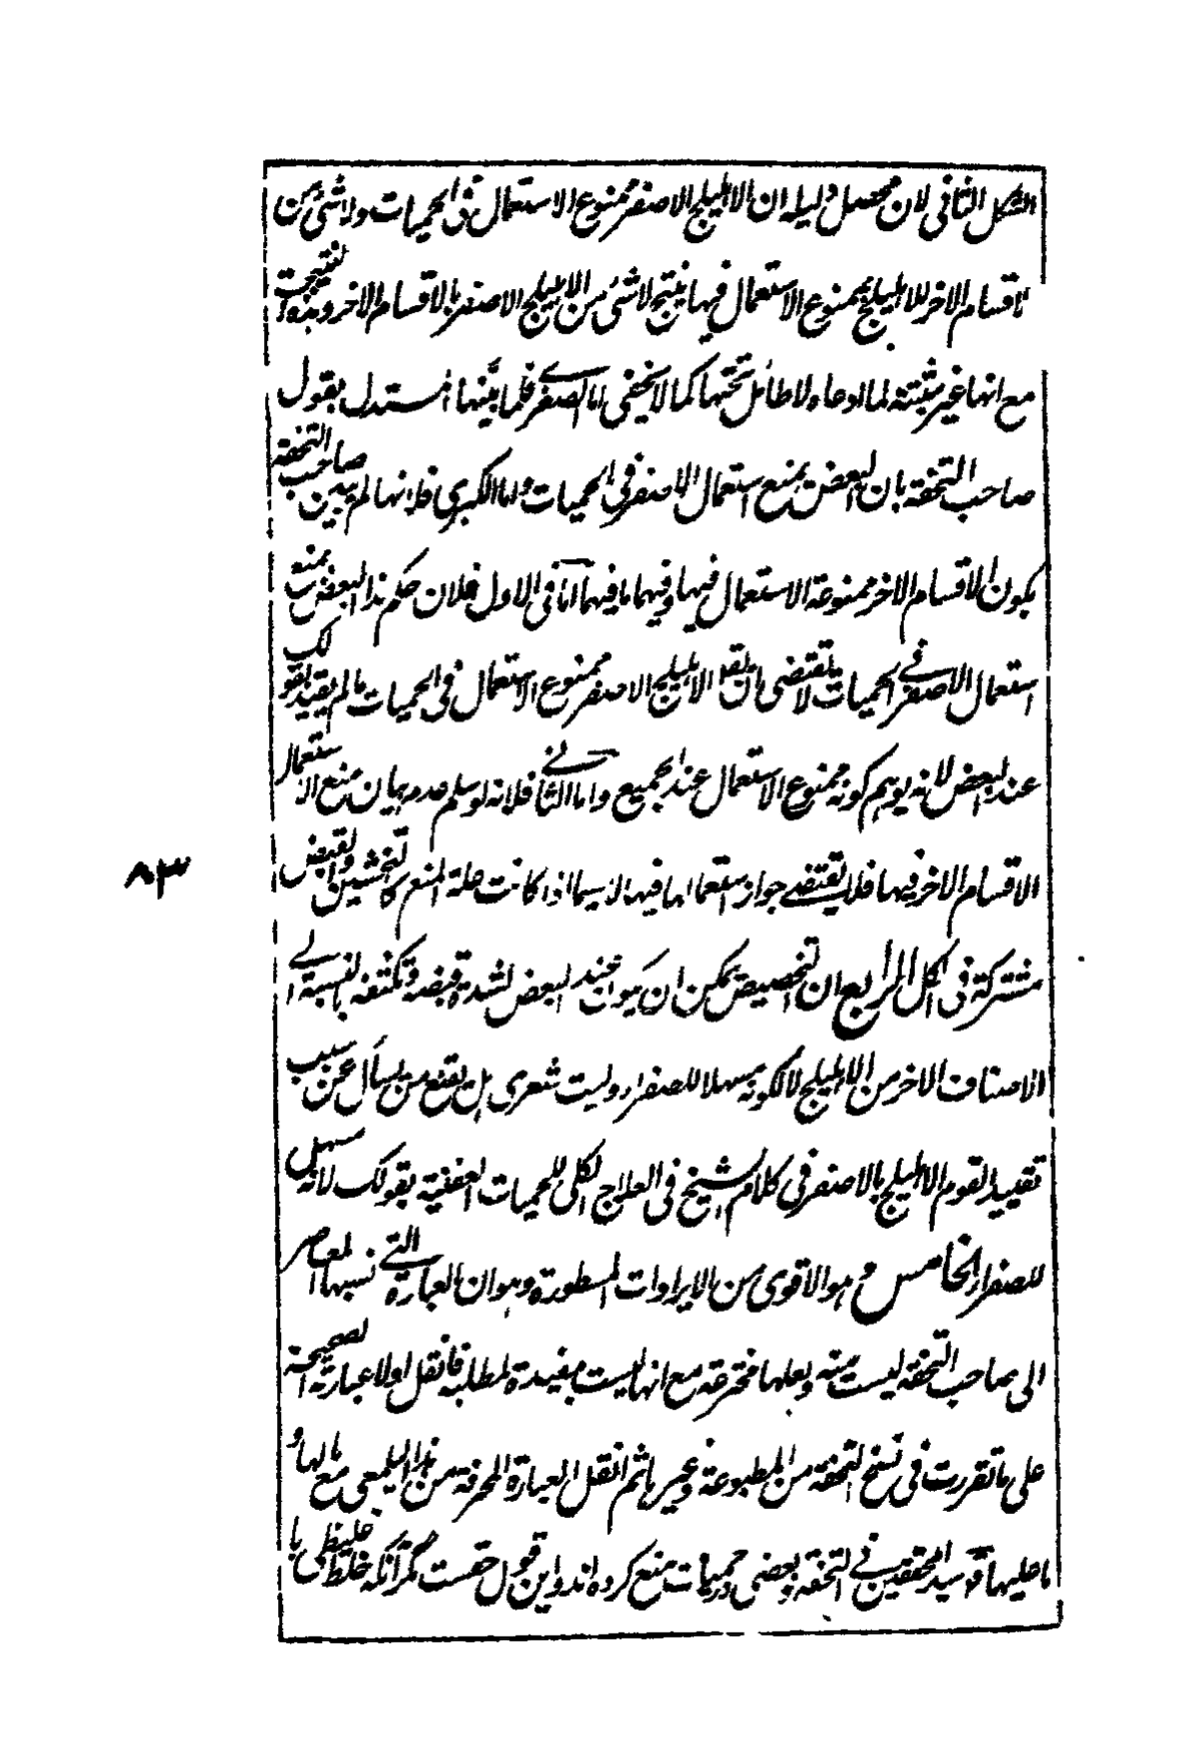 الشكل الثانى لان محصل دليله ان الاهليلج الاصفر ممنوع الاستعمال فى الحميات ولا شئ من
الاقسام الاخر للاهليلج بممنوع الاستعمال فيها ينتج لا شئ من الاهليلج الاصفر بالاقسام الاخر وهذه النتيجة
مع انها غير مثبتة لما ادعاه ولا طائل تحتها كما لا يخفى اما الصغرى فلما بينها المستدل بقول
صاحب التحفة بان البعض يمنع استعمال الاصفر فى الحميات واما الكبرى فلانها لم يبين صاحب التحفة
بكون الاقسام الاخر ممنوعة الاستعمال فيها وفيهما ما فيهما اما فى الاول فلان حكم هذا البعض بمنع
استعمال الاصفر فى الحميات لا يقتضى ان يقال الاهليلج الاصفر ممنوع الاستعمال فى الحميات ما لم يقيد بقولك
عند البعض لانه يوهم كونه ممنوع الاستعمال عند الجميع واما الثانى فلانه لو سلم عدم بيان منع الاستعمال
الاقسام الاخر فيها فلا يقتضى جواز استعمالها فيها لا سيما اذا كانت علة المنع كالتخشين والقبض
مشتركة فى الكل الرابع ان التخصيص يمكن ان يكون عند البعض لشدة قبضه وتكثفه بالنسبة الى
الاصناف الاخر من الاهليلج لا لكونه مسهلا للصفراء وليت شعرى هل يقنع من يسأل عن سبب
تقييد القوم الاهليلج بالاصفر فى كلام الشيخ فى العلاج الكلى للحميات العفنية بقولك لانه مسهل
للصفراء الخامس وهو الاقوى من الايرادات المسطورة وهو ان العبارة التى نسبها المعاصر
الى صاحب التحفة ليست منه ولعلها مخترعة مع انها ليست بمفيدة لمطلبه فانقل اولا عبارته الصحيحة
على ما تقررت فى نسخ التحفة من المطبوعة وغيرها ثم انقل العبارة المحرفة من هذا اليلمعى مع ما لها و
ما عليها قال سيد المحققين فى التحفة وبعضى در حميات منع كرده اند واين قول حقست مگر آنكه خلط غليظى با
٨٣